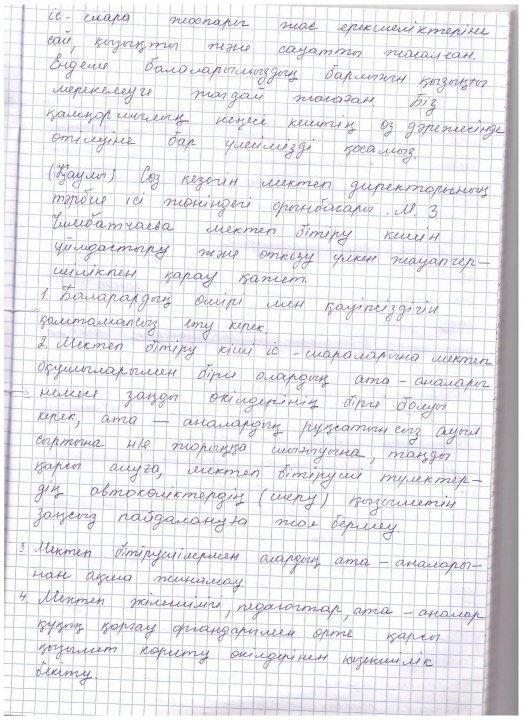 іс-шара жоспары жас ерекшеліктеріне
сай, қызықты және сауатты жасалған.
Ендеше балаларымыздың барлығын қызықты
мерекелеуге жағдай жасаған. Біз
қамқоршылық кеңесе кештің өз дәрежесінде
өтілуіне бар үлесімізді қосамыз.
(Қаулы) Сөз кезегін мектеп директорының
тәрбие ісі жөніндегі орынбасары. М. З
мектеп бітіру кешін
ұйымдастыру және өткізу үлкен жауапгер-
шілікпен қарау қажет.
1. Баларардың өмірі мен қауіпсіздігін
қамтамасыз ету керек.
2 Мектеп бітіру кіші іс-шараларына мектеп
оқушыларымен бірге олардың ата-аналары
немесе заңды өкілдерінің бірге болуы
керек, ата-аналардың рұқсатынсыз ауыл
сыртына н/е жорыққа шығуына, таңды
қарсы алуға, мектеп бітіруші түлектер-
дің автокөліктердің (шеру) қызыметін
заңсыз пайдалануға жол бермеу.
3. Мектеп бітірушілермен олардың ата-аналары-
нан ақша жинамау
4. Мектеп әкімшілігі, педагогтар, ата-аналар
құқық қорғау органдарымен өртке қарсы
қызымет көрсету өкілдерінен кезекшілік
бекіту.